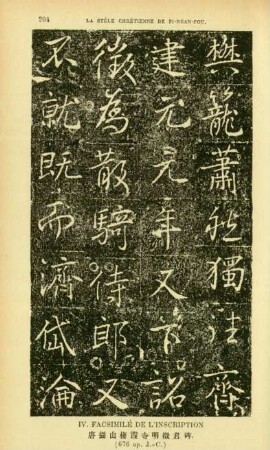 204 LA STÈLE CHRÉTIENNE DE SI-NGAN-FOU.
樊籠蕭然獨往齊
建元元年又下詔
徵為散騎侍郎又
不就既而濟岱淪
IV. FACSIMILÉ DE L'INSCRIPTION
唐攝山棲霞寺明徵君碑.
(676 ap. J.-C.)